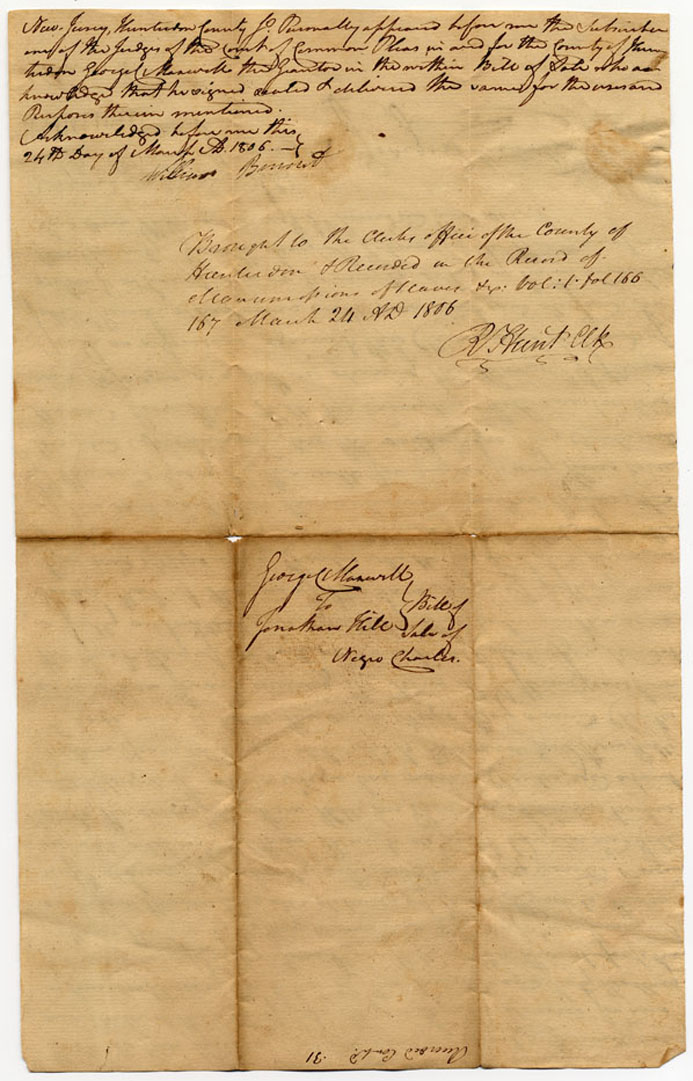 New Jersey, Hunterdon County Ss. Personally appeared before me the Subscriber
one of the Judges of the Court of Common Pleas in and for the County of Hun
terdon George C Maxwell the Grantor in the within Bill of Sale who ac
knowledge that he signed sealed & delivered the same for the uses and
Purposes therein mentioned.
Acknowledged before me this
24th Day of March AD. 1806.
William Bennet
Brought to the Clerks office of the County of
Hunterdon & Recorded in the Record of
Manumissions of Slaves &c. Vol: 1. fol 166
167 March 24 AD 1806
R Hunt Clk
George C Maxwell
To
Jonathan Hill
Bill of
Sale of
Negro Charles.
31